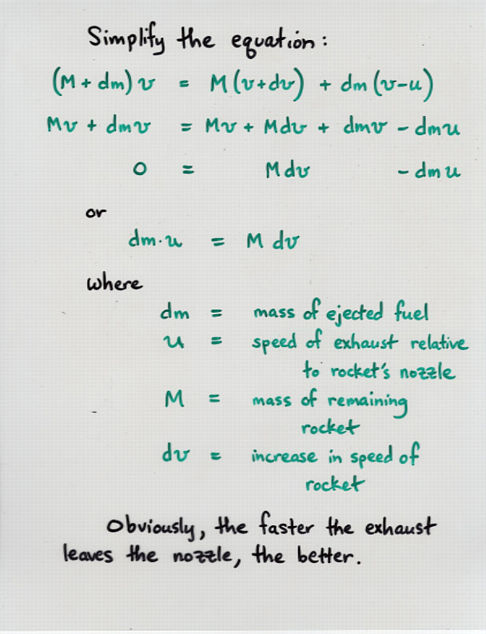 Simplify the equation:
(M + dm) v = M (v+dv) + dm (v-u)
Mv + dmv = Mv + Mdv + dmv - dmu
0 = Mdv - dmu
or
dm·u = M dv
where
dm = mass of ejected fuel
u = speed of exhaust relative
to rocket's nozzle
M = mass of remaining
rocket
dv = increase in speed of
rocket
Obviously, the faster the exhaust
leaves the nozzle, the better.